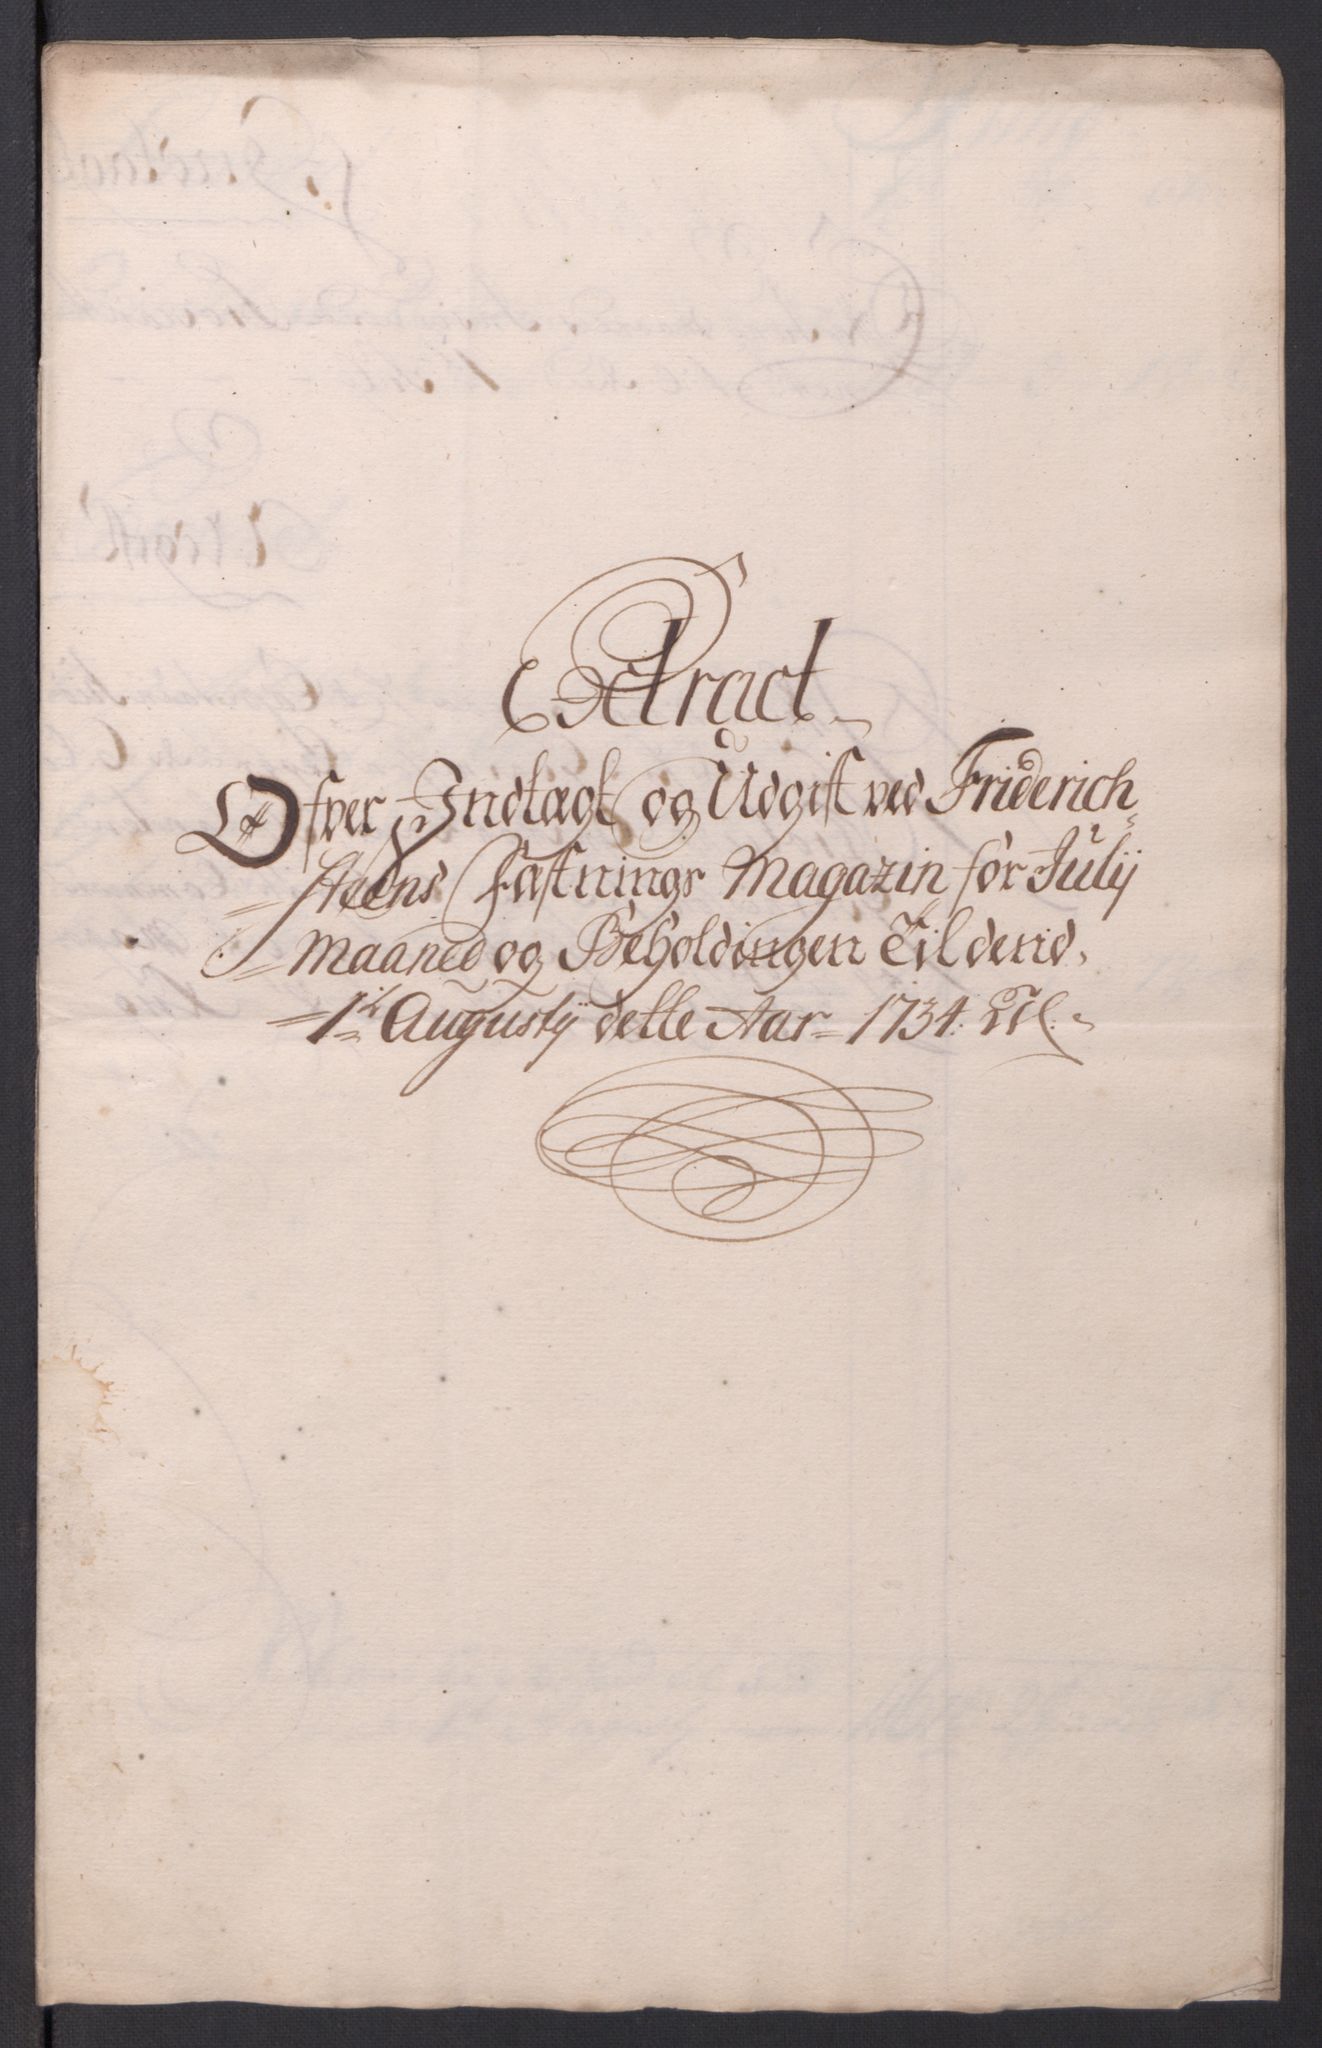 Extract
Ofver Indtægt og Udgift ved Friderich
steens Fæstnings Magazin for Julij
Maaned og Beholdingen Til dend
1ste Augustij dette Aar 1734.